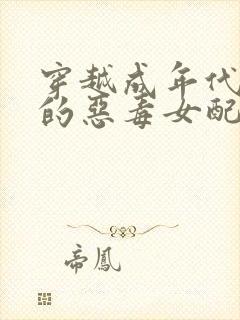 穿越成年代
的惡毒女配
帝鳳